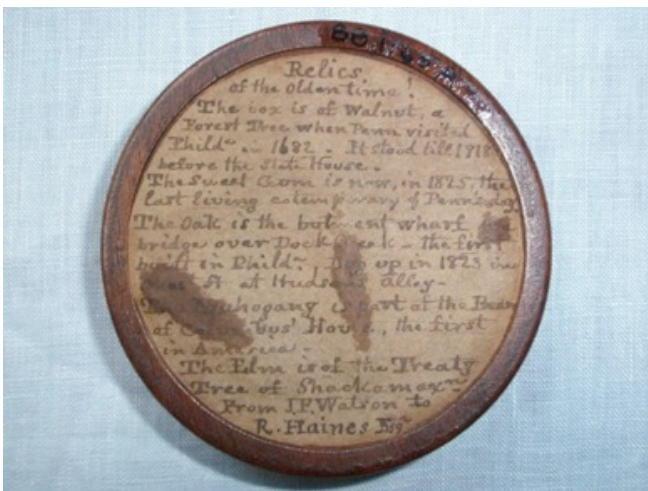 Relics
of the Olden time!
The box is of Walnut, a
Forest Tree when Penn visited
Philda in 1682. It stood till 1818
before the State House.
The Sweet Gum is now, in 1825, the
last living cotemporary of Penn's day
The Oak is the wharf
bridge over Dock Creek - the first
built in Philda. Dug up in 1823 in
St at Hudson's Alley-
The Mahogany is part of the Beam
of Columbus' House, the first
in America
The Elm is of the Treaty
Tree of Shackamaxn
From J.F. Watson to
R. Haines Esqr